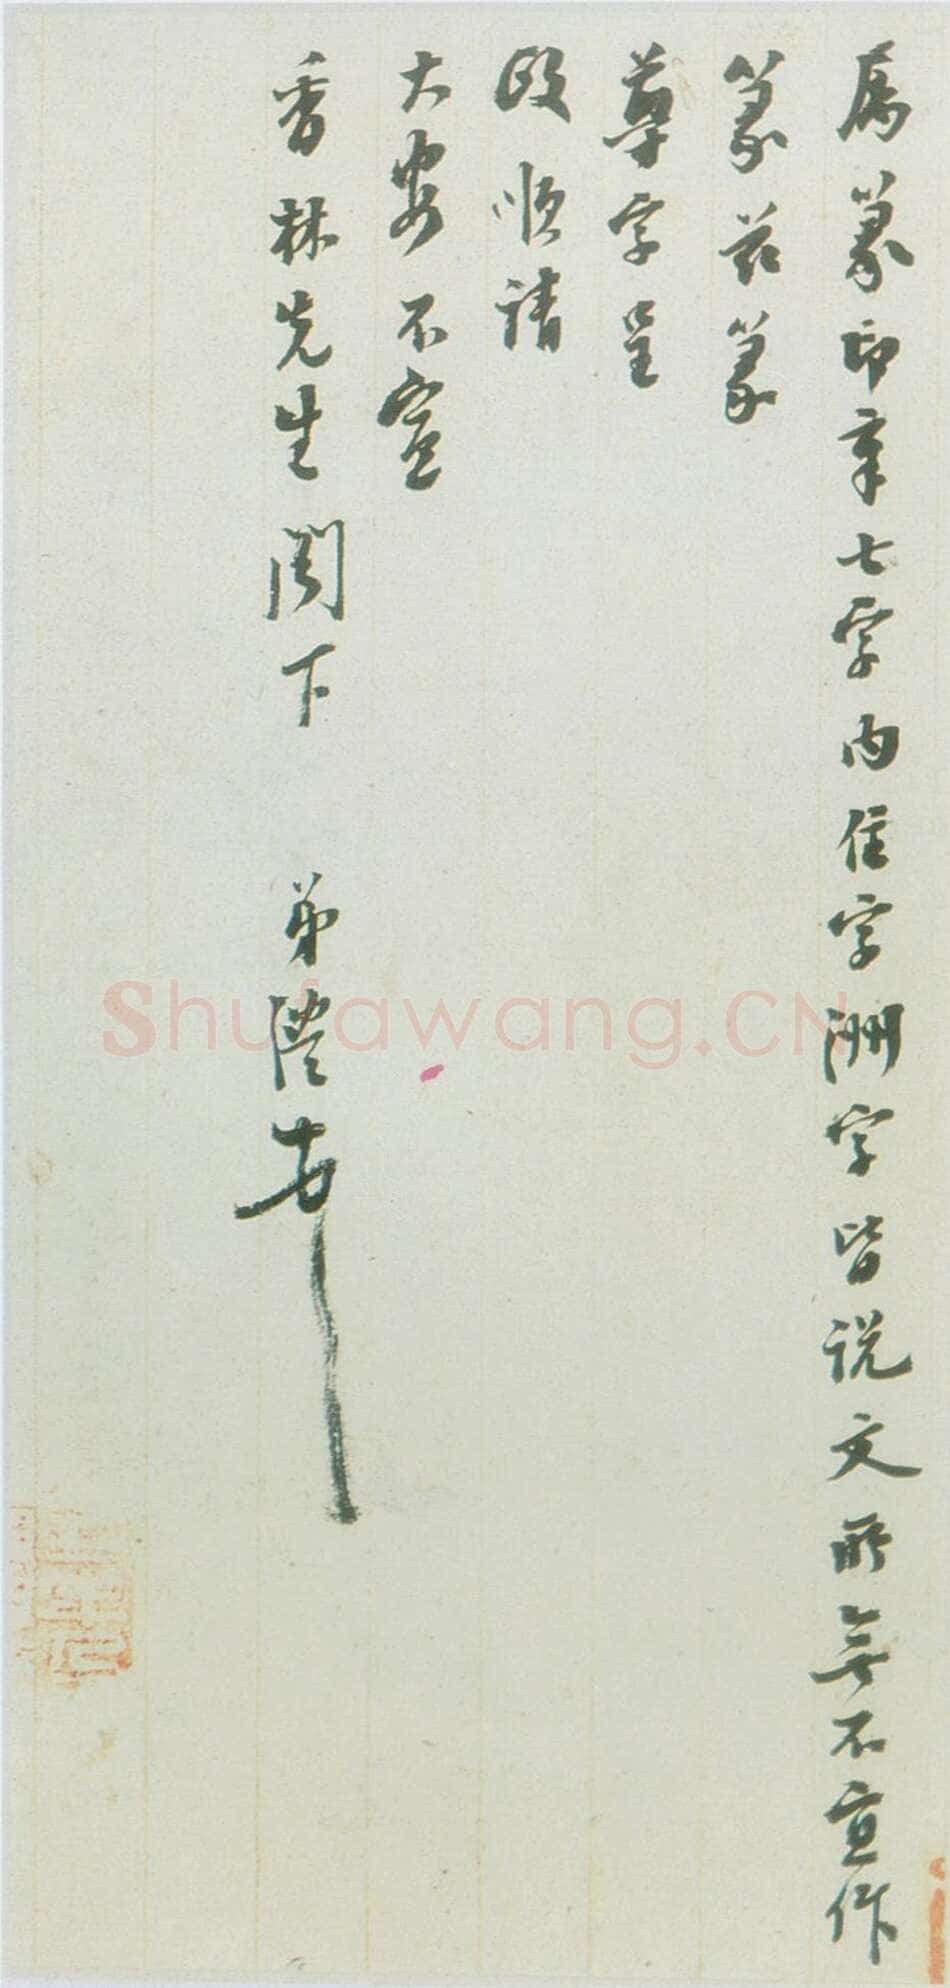 属篆印章七字内住字洲字皆說文所無不宜作
篆茲篆
尊字呈
政順請
大安不宣
香林先生閣下 弟澧
Shufawang.CN